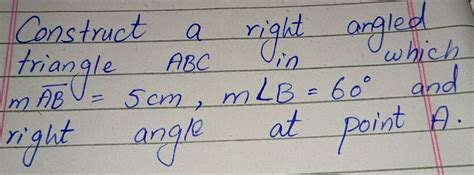 Construct a right angled
triangle ABC in which
mAB = 5cm, m∠B = 60° and
right angle at point A.